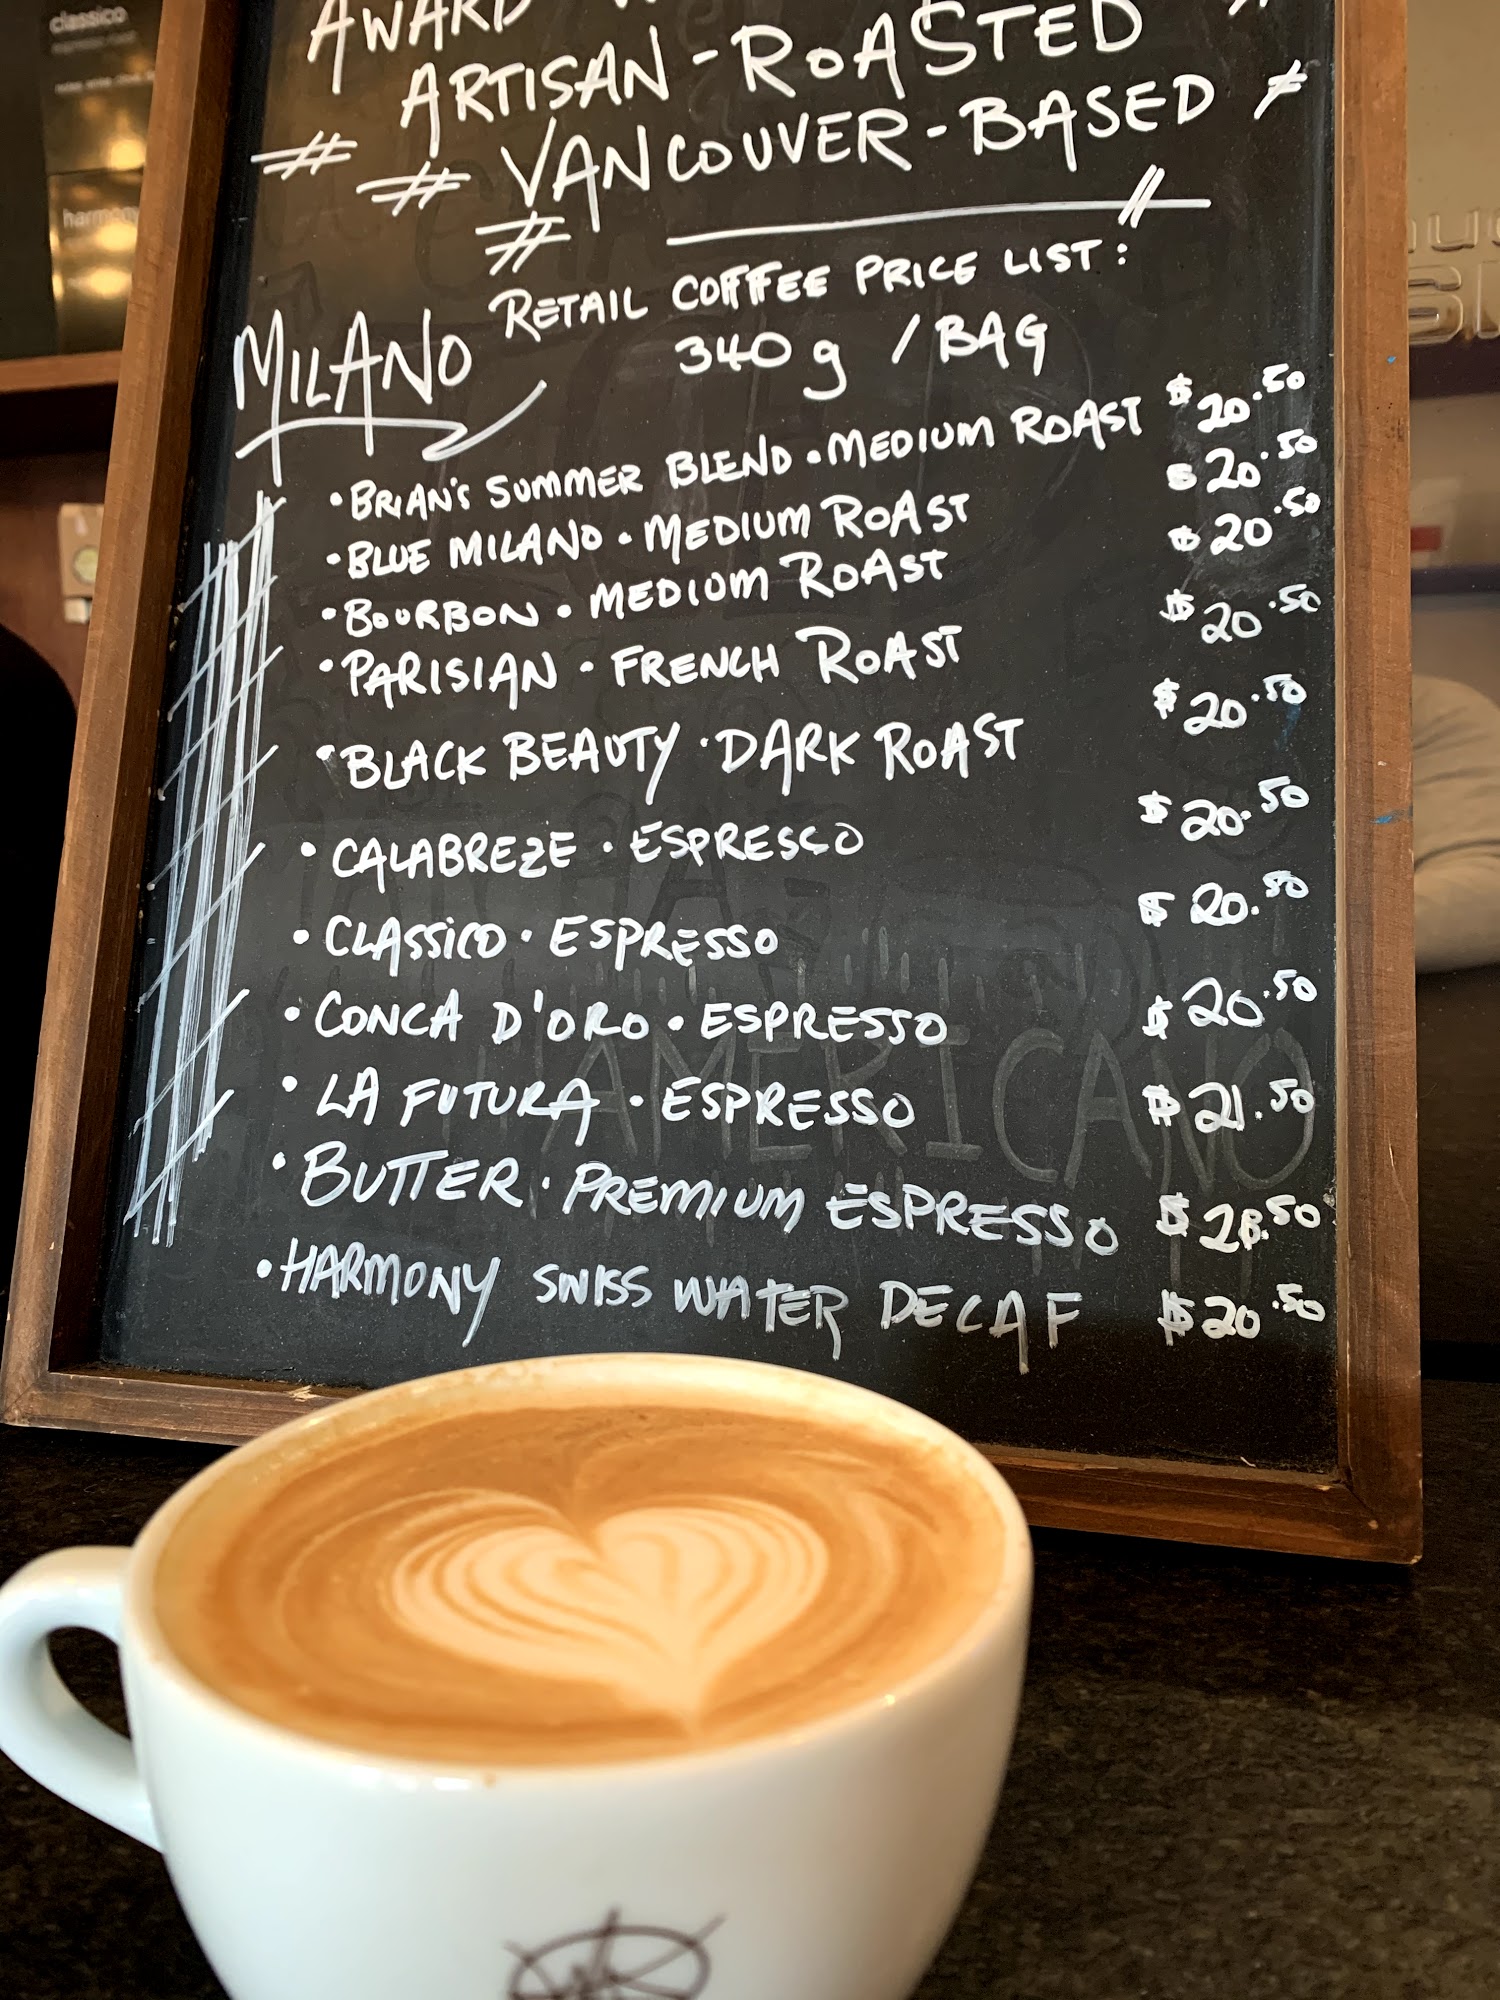 classico
harmony
AWARD
ARTISAN-ROASTED
VANCOUVER-BASED
MILANO RETAIL COFFEE PRICE LIST:
340 g / BAG
• BRIAN'S SUMMER BLEND • MEDIUM ROAST $20.50
• BLUE MILANO • MEDIUM ROAST $20.50
• BOURBON • MEDIUM ROAST $20.50
• PARISIAN • FRENCH ROAST $20.50
• BLACK BEAUTY • DARK ROAST $20.50
• CALABREZE • ESPRESSO $20.50
• CLASSICO • ESPRESSO $20.50
• CONCA D'ORO • ESPRESSO $20.50
• LA FUTURA • ESPRESSO $21.50
• BUTTER • PREMIUM ESPRESSO $28.50
• HARMONY SWISS WATER DECAF $20.50
AMERICANO